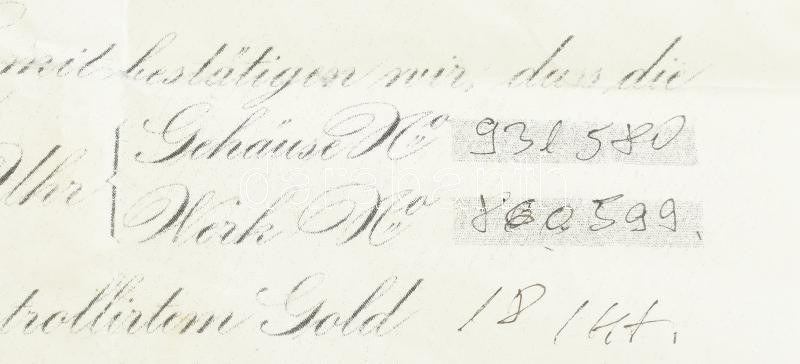 mit bestätigen wir, dass die
Gehäuse No 931580
Uhr {
Werk No 860599.
trollirtem Gold 18 Kt.